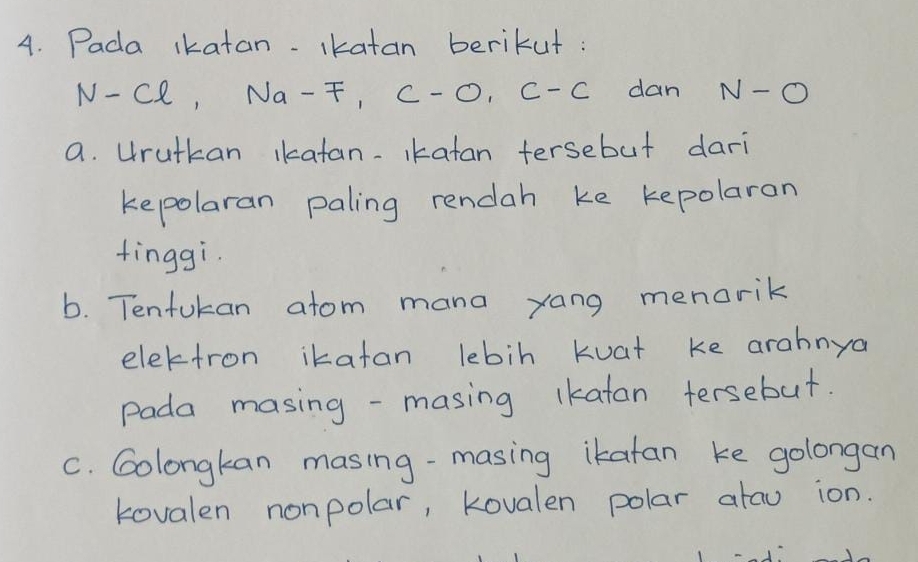 4. Pada ikatan - ikatan berikut :
N - Cl , Na - F, C - O, C - C dan N - O
a. Urutkan ikatan - ikatan tersebut dari
kepolaran paling rendah ke kepolaran
tinggi.
b. Tentukan atom mana yang menarik
elektron ikatan lebih kuat ke arahnya
pada masing - masing ikatan tersebut.
c. Golongkan masing - masing ikatan ke golongan
kovalen nonpolar, kovalen polar atau ion.